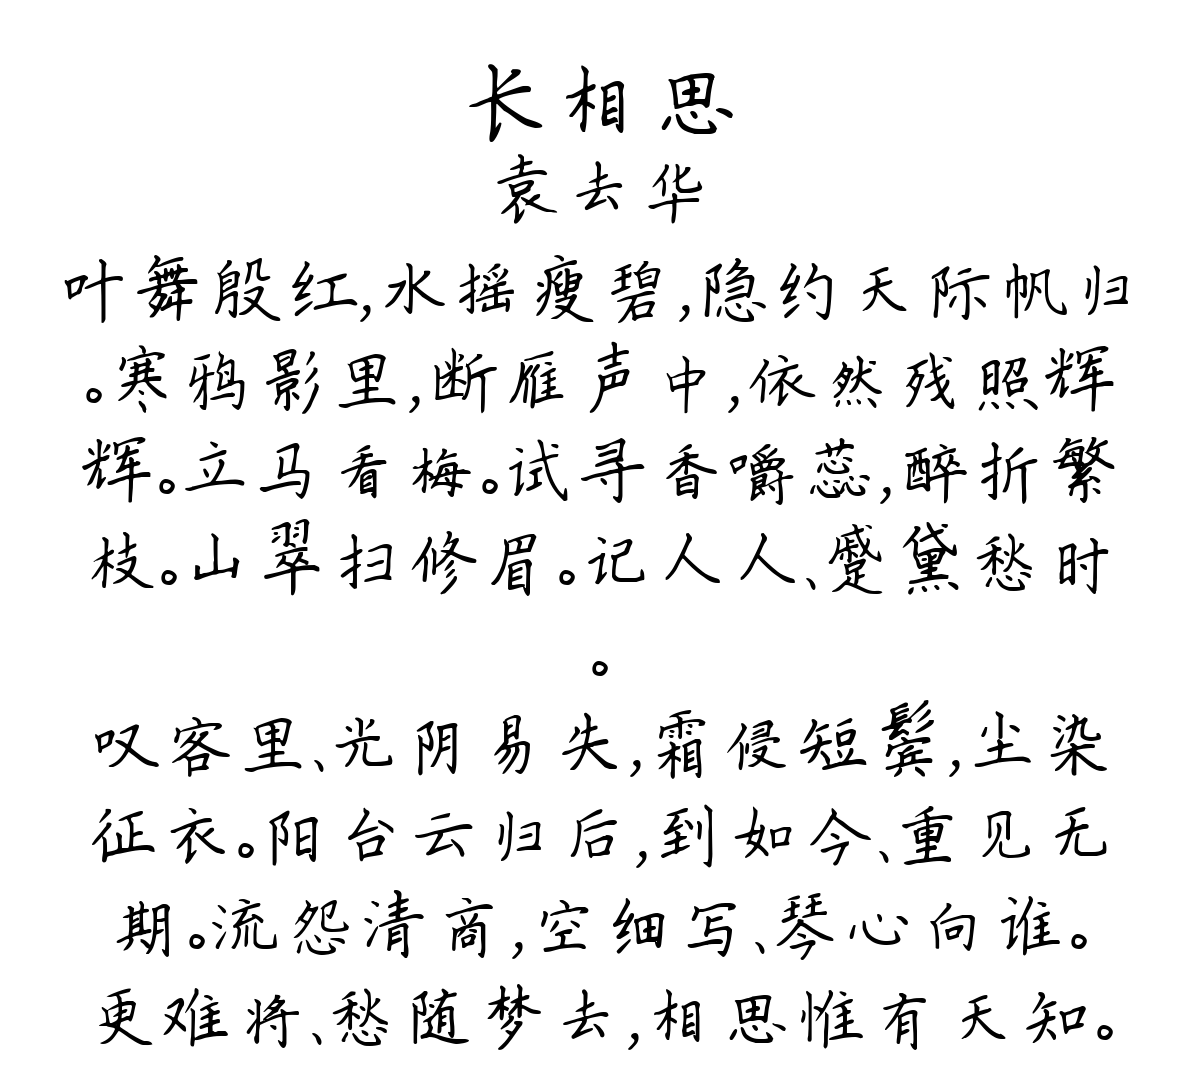 长相思
袁去华
叶舞殷红,水摇瘦碧,隐约天际帆归
。寒鸦影里,断雁声中,依然残照辉
辉。立马看梅。试寻香嚼蕊,醉折繁
枝。山翠扫修眉。记人人、蹙黛愁时
。
叹客里、光阴易失,霜侵短鬓,尘染
征衣。阳台云归后,到如今、重见无
期。流怨清商,空细写、琴心向谁。
更难将、愁随梦去,相思惟有天知。